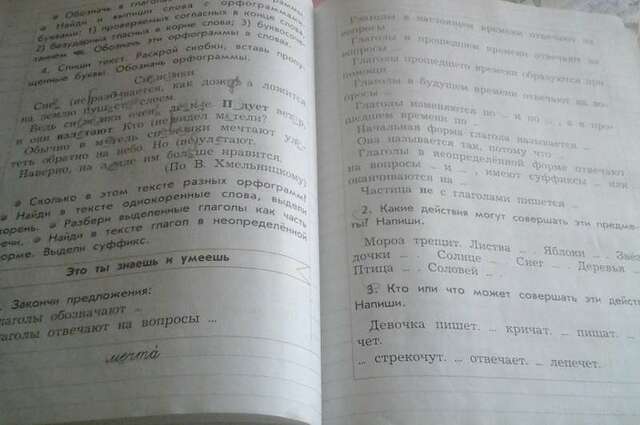 Обозначь в глаголах
Найди и выпиши слова с орфограммами:
1) проверяемых согласных в конце слова;
2) безударных гласных в корне слова; 3) буквосоче-
танием Обозначь эти орфограммы в словах.
4. Спиши текст. Раскрой скобки, вставь пропу-
щенные буквы. Обозначь орфограммы.
Снежинки
Сне (не)разбивается, как дож а ложится
на землю пуш стым слоем.
Ведь сн жинки очень П дует вет р,
и они взлетают. Кто (не)видел м тели?
Обычно в м тель сн жинки мечтают ул
теть обратно на небо. Но (не)улетают.
Наверно, на з мле им больше нравится.
(По В. Хмельницкому)
Сколько в этом тексте разных орфограмм?
Найди в тексте однокоренные слова, выдели
корень. Разбери выделенные глаголы как часть
речи. Найди в тексте глагол в неопределённой
форме. Выдели суффикс.
Это ты знаешь и умеешь
Закончи предложения:
Глаголы обозначают ...
Глаголы отвечают на вопросы ...
мечта́
Глаголы в настоящем времени отвечают на
вопросы ...
Глаголы в прошедшем времени отвечают на
вопросы ...
Глаголы прошедшего времени образуются при
помощи ...
Глаголы в будущем времени отвечают на во-
просы ...
Глаголы изменяются по ... и по ..., а в про-
шедшем времени по ...
Начальная форма глагола называется ...
Она называется так, потому что ...
Глаголы в неопределённой форме отвечают
на вопросы ... и ..., имеют суффиксы ... или
оканчиваются на ...
Частица не с глаголами пишется ...
2. Какие действия могут совершать эти предме-
ты? Напиши.
Мороз трещит. Листва ... . Яблоки ... . Звёз
дочки ... . Солнце ... . Снег ... . Деревья
Птица ... . Соловей ... .
3. Кто или что может совершать эти дейст
Напиши.
Девочка пишет. ... кричат. ... пищат. ...
чет.
... стрекочут. ... отвечает. ... лепечет.